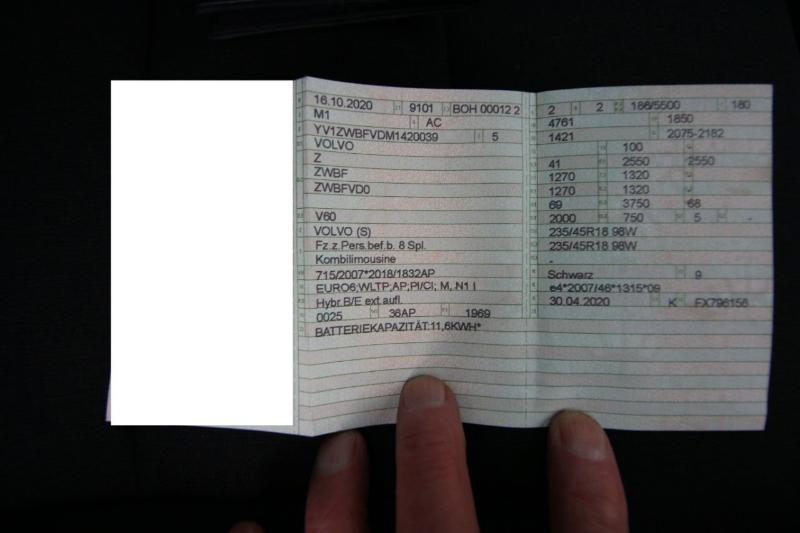 16.10.2020 9101 BOH 00012 2
M1 AC
YV1ZWBFVDM1420039 5
VOLVO
Z
ZWBF
ZWBFVD0
V60
VOLVO (S)
Fz.z.Pers.bef.b. 8 Spl.
Kombilimousine
715/2007*2018/1832AP
EURO6;WLTP;AP;PI/CI; M, N1 I
Hybr.B/E ext.aufl.
0025 36AP 1969
BATTERIEKAPAZITÄT:11,6KWH*
2 2 186/5500 180
4761 1850
1421 2075-2182
100
41 2550 2550
1270 1320
1270 1320
69 3750 68
2000 750 5
235/45R18 98W
235/45R18 98W
-
Schwarz 9
e4*2007/46*1315*09
30.04.2020 K FX796156